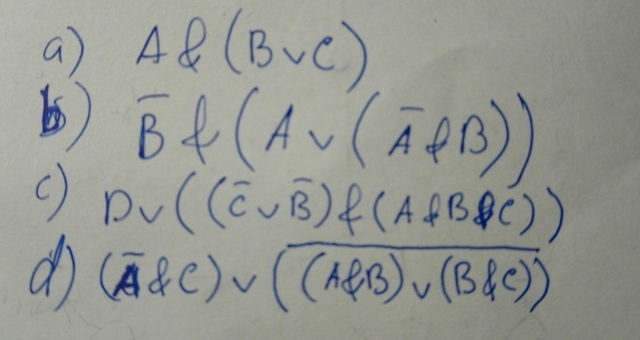 a) A & (B ∨ C)
b) B̅ & (A ∨ (A̅ & B))
c) D ∨ ((C̅ ∨ B̅) & (A & B & C))
d) (A̅ & C) ∨ (\overline{(A & B) ∨ (B & C)})